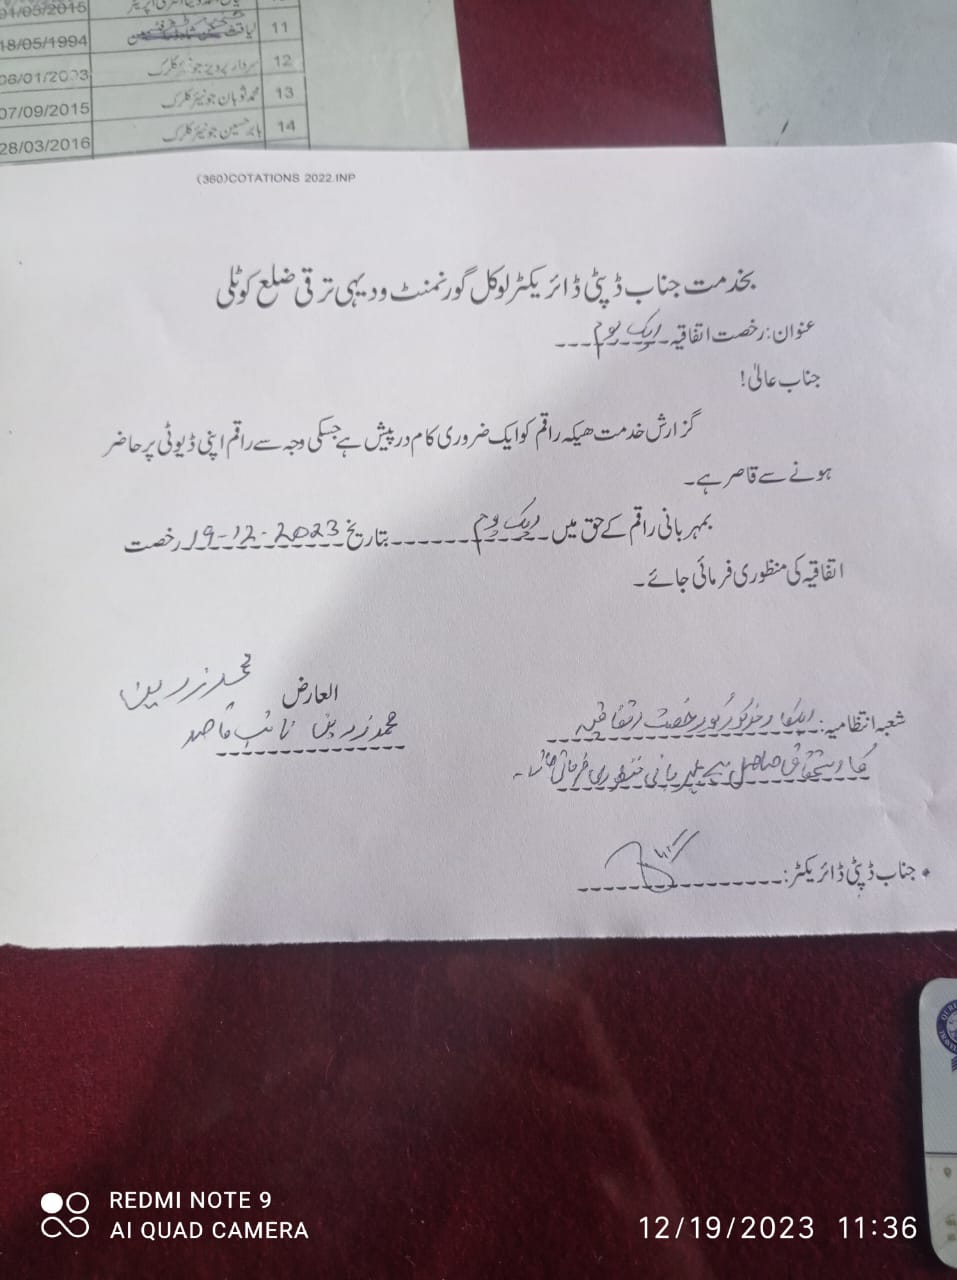 01/05/2015
18/05/1994 11
06/01/2003 سردار پرویز جونیئر کلرک 12
07/09/2015 محمد ثوبان جونیئر کلرک 13
28/03/2016 بابر حسین جونیئر کلرک 14
(360)COTATIONS 2022.INP
بخدمت جناب ڈپٹی ڈائریکٹر لوکل گورنمنٹ و دیہی ترقی ضلع کوٹلی
عنوان: رخصت اتفاقیہ ایک یوم
جناب عالیٰ!
گزارش خدمت ھیکہ راقم کو ایک ضروری کام درپیش ہے جسکی وجہ سے راقم اپنی ڈیوٹی پر حاضر
ہونے سے قاصر ہے۔
بمہربانی راقم کے حق میں ایک یوم بتاریخ 19-12-2023 رخصت
اتفاقیہ کی منظوری فرمائی جائے۔
العارض محمد زرین
محمد زرین نائب قاصد
شعبہ انتظامیہ: اہلکار مذکور کو رخصت اتفاقیہ
کا استحقاق حاصل ہے بمہربانی منظوری فرمائی جائے۔
جناب ڈپٹی ڈائریکٹر:
REDMI NOTE 9
AI QUAD CAMERA
12/19/2023 11:36